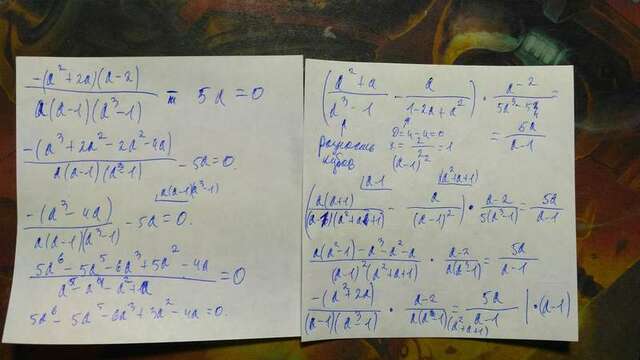 -(a² + 2a)(a - 2) / a(a - 1)(a³ - 1) - 5a = 0
-(a³ + 2a² - 2a² - 4a) / a(a - 1)(a³ - 1) - 5a = 0.
a(a-1)(a³-1)
-(a³ - 4a) / a(a - 1)(a³ - 1) - 5a = 0.
5a⁶ - 5a⁵ - 6a³ + 5a² - 4a / a⁵ - a⁴ - a² + a = 0
5a⁶ - 5a⁵ - 6a³ + 3a² - 4a = 0.
(a² + a / a³ - 1 - a / 1 - 2a + a²) · a - 2 / 5a³ - 5 =
разность кубов
D = 4 - 4 = 0
= 5a / a - 1
x = 2/2 = 1
(a - 1)²
a-1
(a²+a+1)
(a(a+1) / (a-1)(a²+a+1) - a / (a-1)²) · a-2 / 5(a³-1) = 5a / a-1
a(a²-1) - a³ - a² - a / (a-1)²(a²+a+1) · a-2 / a(a³-1) = 5a / a-1
-(a²+2a) / (a-1)(a³-1) · a-2 / a(a³-1) = 5a / a-1 | · (a-1)
(a²+a+1)